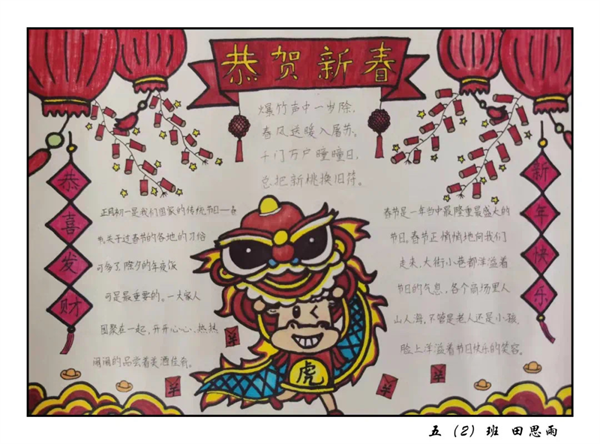 恭贺新春
爆竹声中一岁除，
春风送暖入屠苏。
千门万户曈曈日，
总把新桃换旧符。
恭喜发财
正月初一是我们国家的传统节日——春
关于过春节的各地的习俗
可多了，除夕的年夜饭
可是最重要的。一大家人
围聚在一起，开开心心，热热
闹闹的品尝着美酒佳肴。
春节是一年当中最隆重最盛大的
节日。春节正悄悄地向我们
走来，大街小巷都洋溢着
节日的气息，各个商场里人
山人海，不管是老人还是小孩，
脸上洋溢着节日快乐的笑容。
新年快乐
虎
五（2）班 田思雨